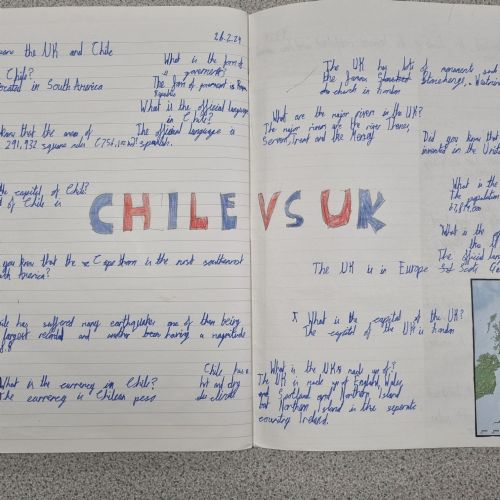 26.2.24
are the UK and Chile
What is the form of
government?
Chile?
located in South America
The form of government is
Republic
What is the official language
in Chile?
know that the area of
The official language is
291,932 square miles (756,
spanish.
the capital of Chile?
of Chile is
CHILE VS UK
you know that the Cape Horn is the most southernest
South America?
Chile has suffered many earthquakes one of them being
largest recorded and another been having a magnitude
8.8
What is the currency in Chile?
The currency is Chilean peso
Chile has a
hot and dry
climate
The UK has lots of monuments and
the famous Stonehenge,
church in London
What are the major rivers in the UK?
The major rivers are the river Thames,
Severn, Trent and the Mersey
Did you know that
invented in the United
What is the
The population
What is the
The official lang
The UK is in Europe
X What is the capital of the UK?
The capital of the UK is London
What is the UK made up of?
The UK is made up of England, Wales,
and Scotland and Northern Island
but Northern Island in the separate
country Ireland.